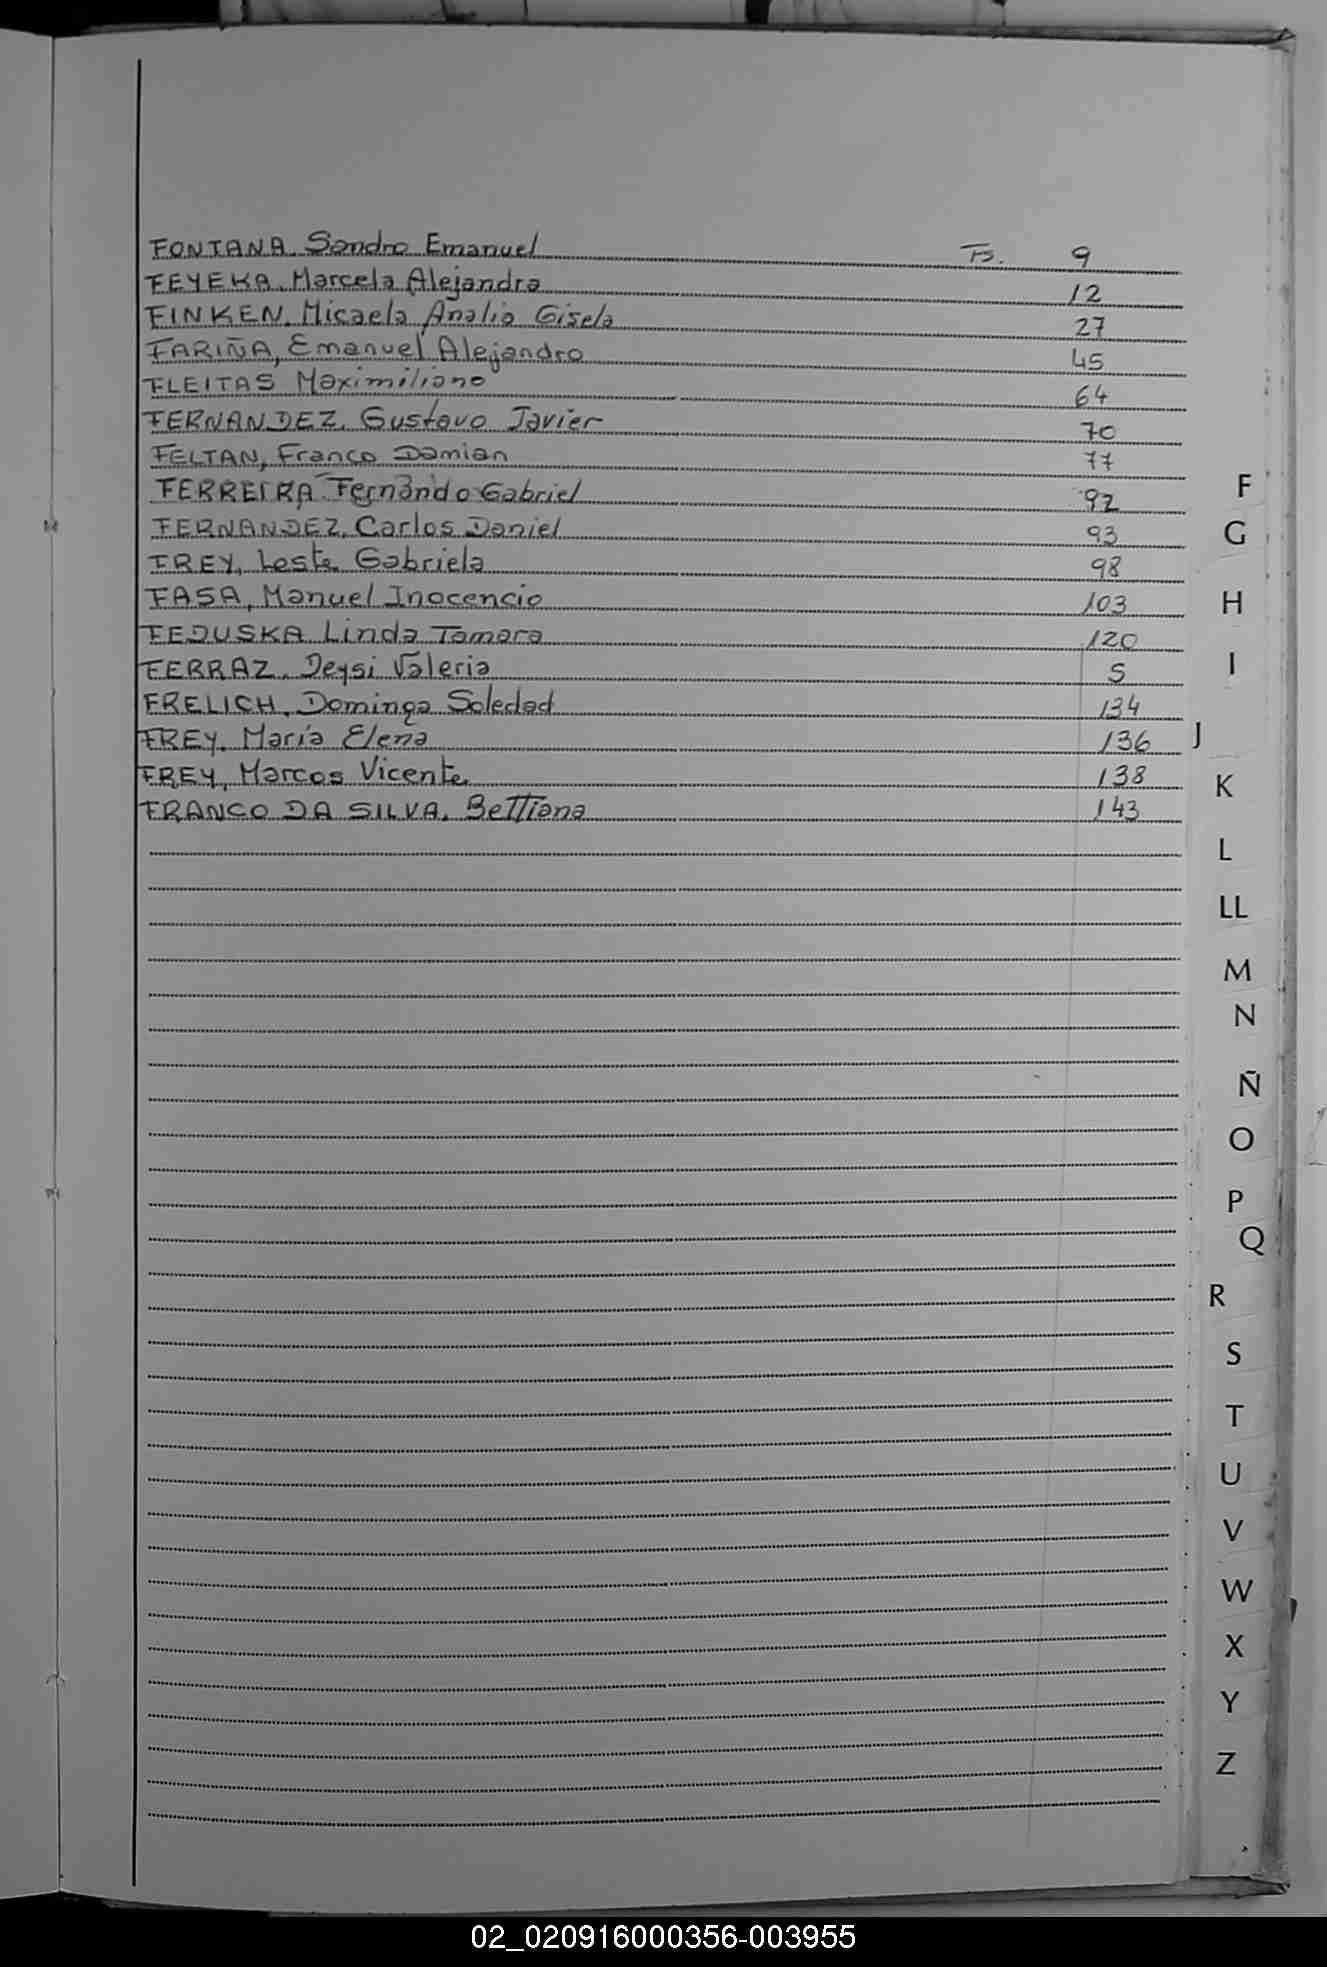 FONTANA, Sandro Emanuel Fs. 9
FEYEKA, Marcela Alejandra 12
FINKEN, Micaela Analia Gisela 27
FARIÑA, Emanuel Alejandro 45
FLEITAS Maximiliano 64
FERNANDEZ, Gustavo Javier 70
FELTAN, Franco Damian 77
FERREIRA Fernando Gabriel 92
FERNANDEZ, Carlos Daniel 93
FREY, Gabriela 98
FASA, Manuel Inocencio 103
FEDUSKA Linda Tamara 120
FERRAZ, Deysi Valeria 5
FRELICH, Dominga Soledad 134
FREY, María Elena 136
FREY, Marcos Vicente 138
FRANCO DA SILVA, Bettiana 143
F
G
H
I
J
K
L
LL
M
N
Ñ
O
P
Q
R
S
T
U
V
W
X
Y
Z
02_020916000356-003955